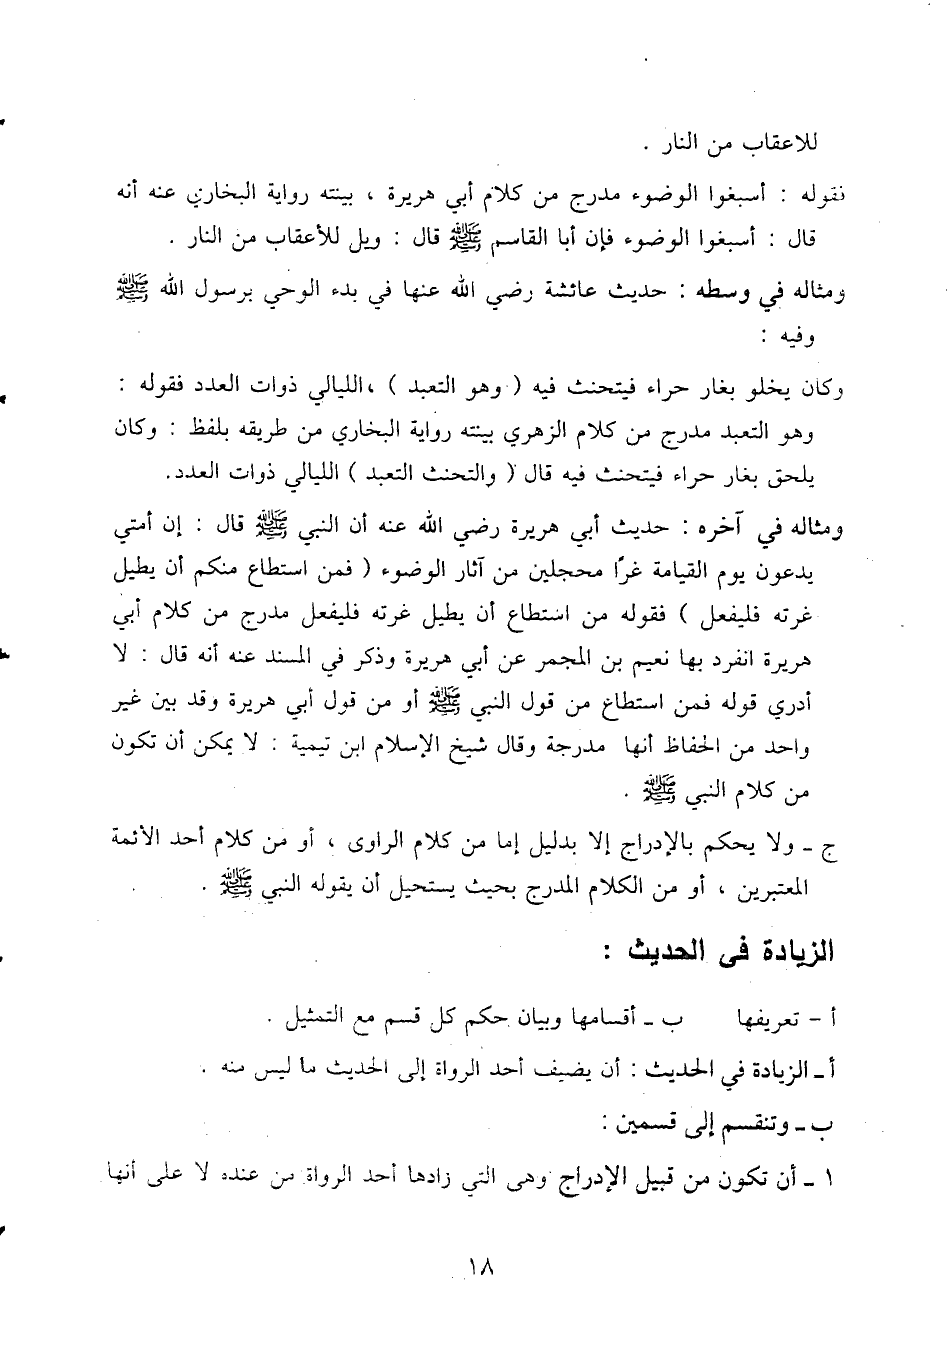 للاعقاب من النار .
فقوله : أسبغوا الوضوء مدرج من كلام أبي هريرة ، بينته رواية البخاري عنه أنه
قال : أسبغوا الوضوء فإن أبا القاسم ﷺ قال : ويل للأعقاب من النار .
ومثاله في وسطه : حديث عائشة رضي الله عنها في بدء الوحي برسول الله ﷺ
وفيه :
وكان يخلو بغار حراء فيتحنث فيه ( وهو التعبد ) ،الليالي ذوات العدد فقوله :
وهو التعبد مدرج من كلام الزهري بينته رواية البخاري من طريقه بلفظ : وكان
يلحق بغار حراء فيتحنث فيه قال ( والتحنث التعبد ) الليالي ذوات العدد.
ومثاله في آخره : حديث أبي هريرة رضي الله عنه أن النبي ﷺ قال : إن أمتي
يدعون يوم القيامة غرًا محجلين من آثار الوضوء ( فمن استطاع منكم أن يطيل
غرته فليفعل ) فقوله من استطاع أن يطيل غرته فليفعل مدرج من كلام أبي
هريرة انفرد بها نعيم بن المجمر عن أبي هريرة وذكر في المسند عنه أنه قال : لا
أدري قوله فمن استطاع من قول النبي ﷺ أو من قول أبي هريرة وقد بين غير
واحد من الحفاظ أنها مدرجة وقال شيخ الإسلام ابن تيمية : لا يمكن أن تكون
من كلام النبي ﷺ .
ج ـ ولا يحكم بالإدراج إلا بدليل إما من كلام الراوى ، أو من كلام أحد الأئمة
المعتبرين ، أو من الكلام المدرج بحيث يستحيل أن يقوله النبي ﷺ .
الزيادة فى الحديث :
أ - تعريفها ب ـ أقسامها وبيان حكم كل قسم مع التمثيل .
أ ـ الزيادة في الحديث : أن يضيف أحد الرواة إلى الحديث ما ليس منه .
ب ـ وتنقسم إلى قسمين :
١ ـ أن تكون من قبيل الإدراج وهى التي زادها أحد الرواة من عنده لا على أنها
١٨